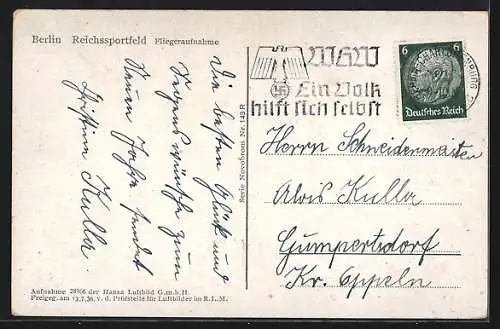 Berlin Reichssportfeld Fliegeraufnahme
Die besten Glück und
Segenswünsche zum
Neuen Jahre sendet
Christina Kulla
Aufnahme 28966 der Hansa Luftbild G.m.b.H.
Freigeg. am 13.7.36 v. d. Prüfstelle für Luftbilder im R.L.M.
Berlin Novobrom Nr. 143 R
WHW
Ein Volk
hilft sich selbst
6 6
Deutsches Reich
Herrn Schneidermeister
Alois Kulla
Gumpertsdorf
Kr. Oppeln